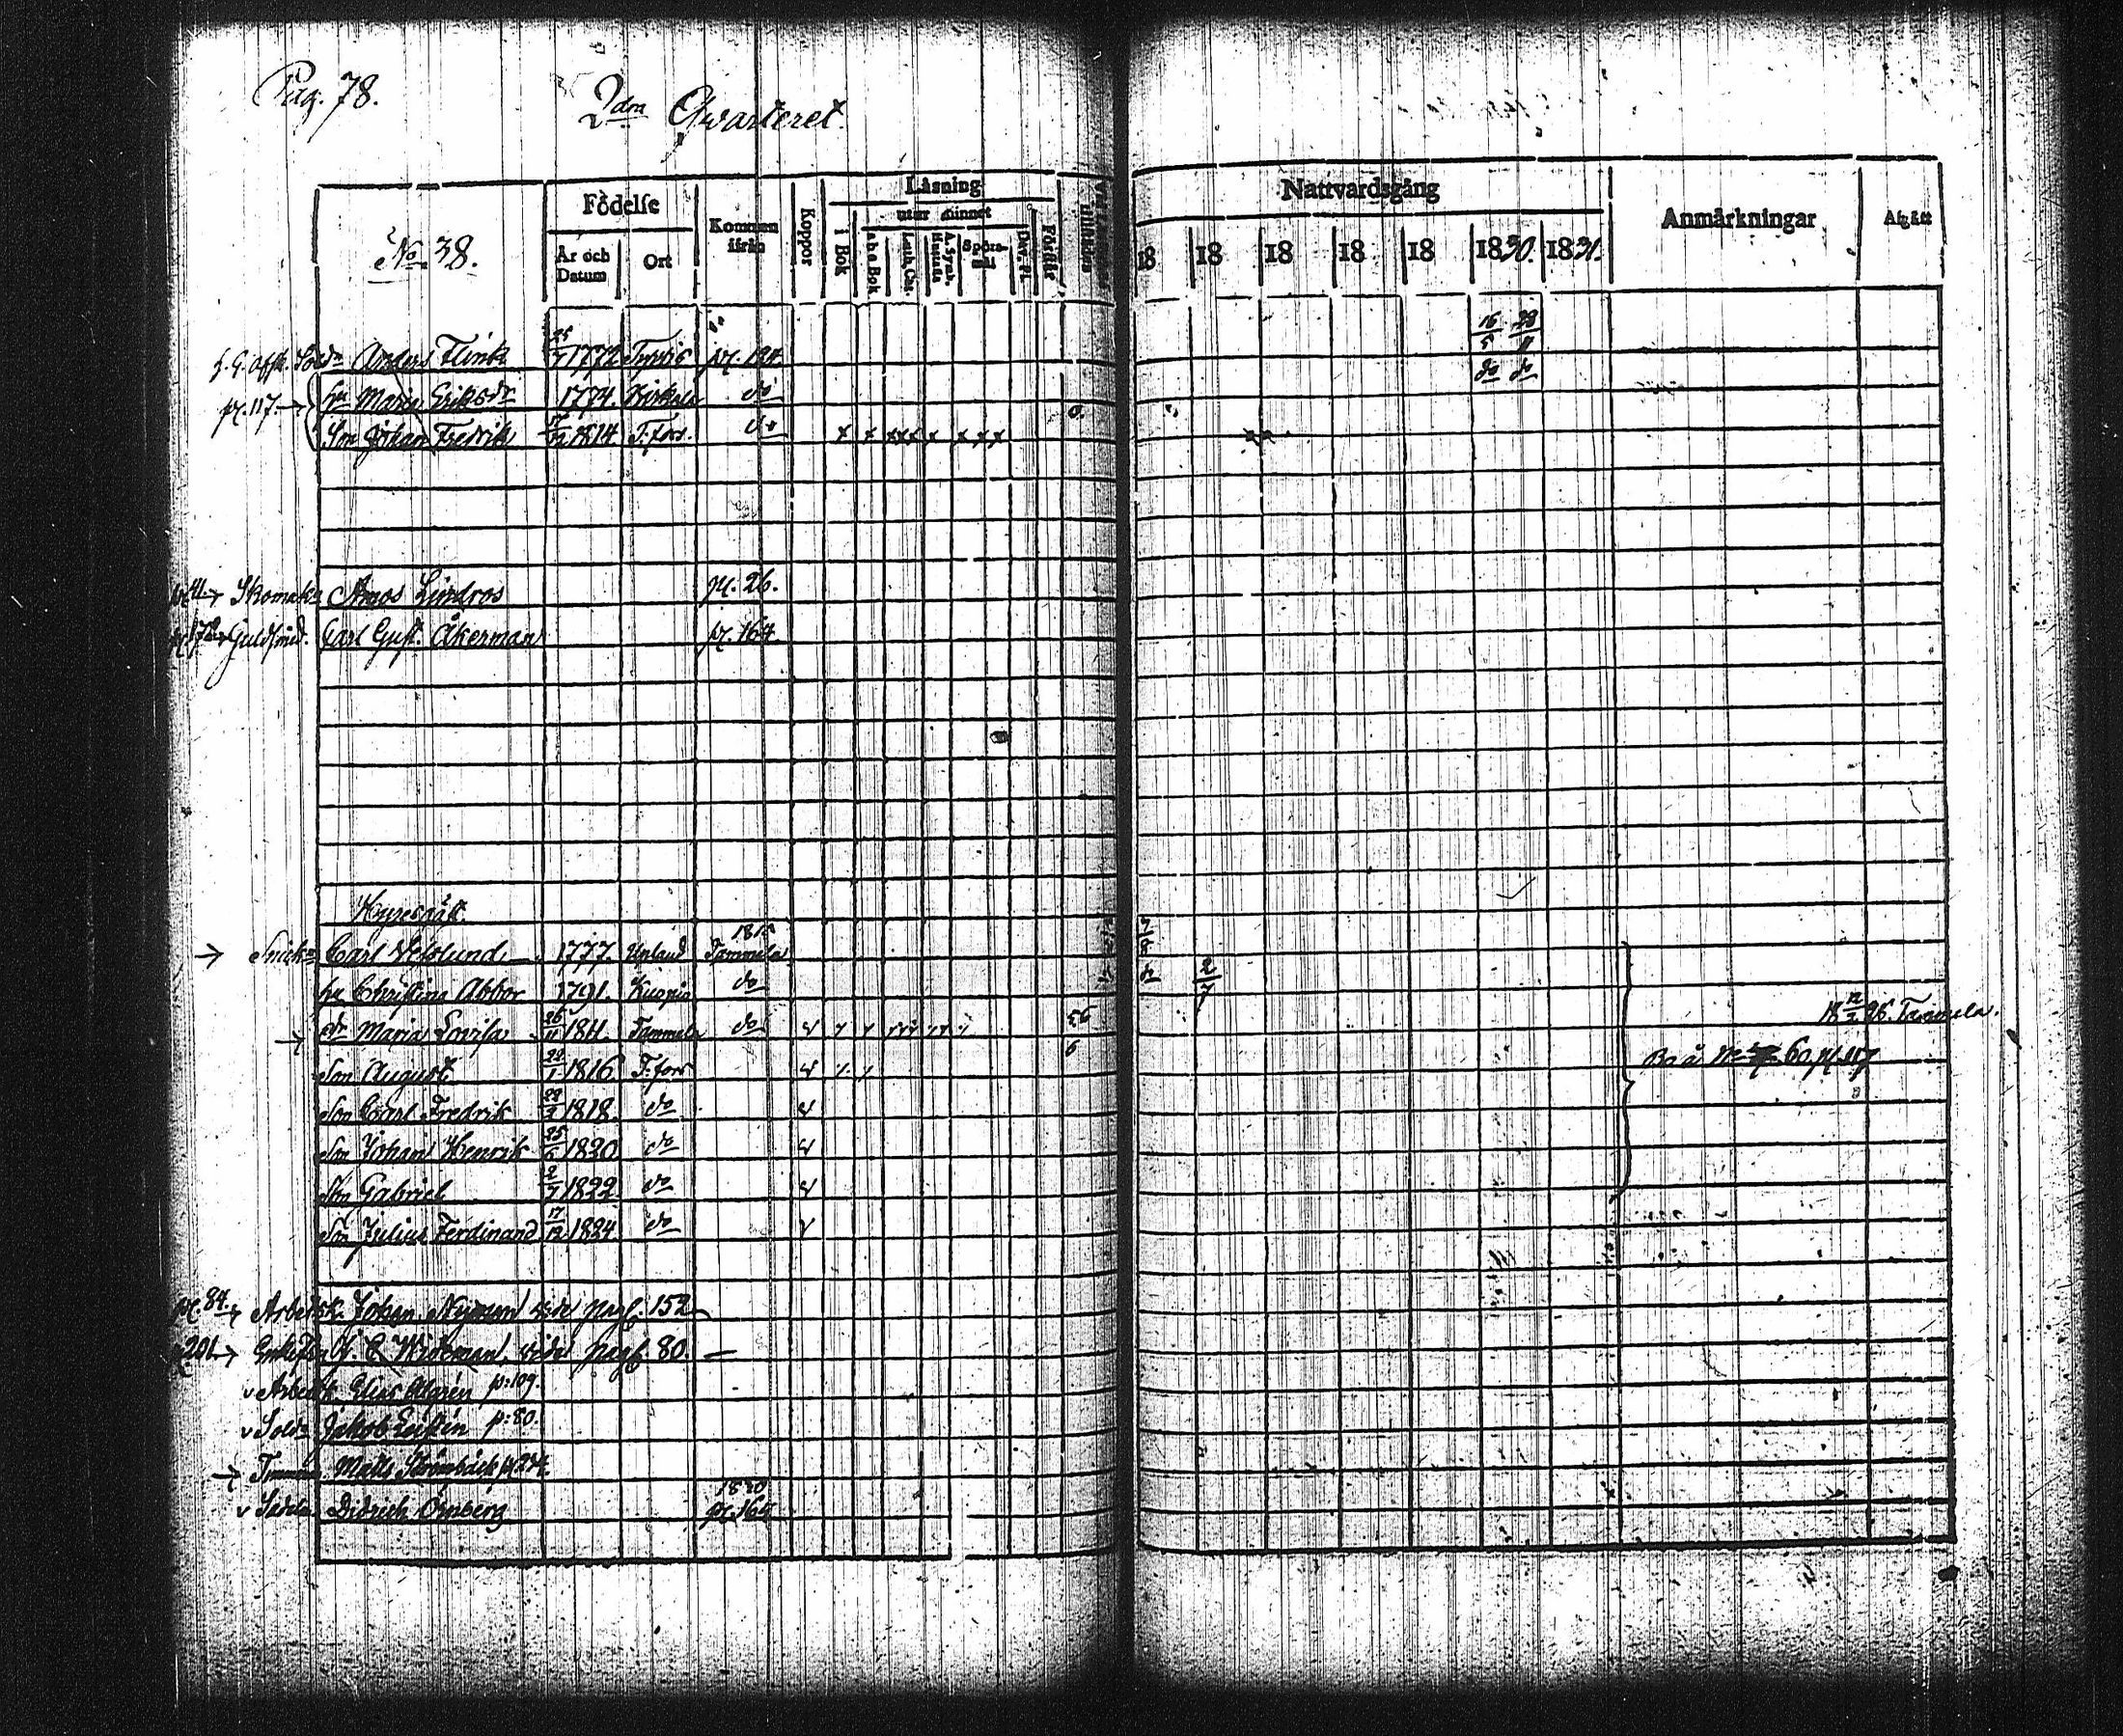 Pag. 78.
2dra Qvarteret.
No 38.
Födelse
År och Datum
Ort
Kommen ifrån
Koppor
Läsning
i Bok
utur minnet
a b c Bok
Luth. Cat.
A. Symb. Hustafla
Spörsmål
Dav. Ps.
Förstår
Nattvardsgång
18 18 18 18 18 1830. 1831.
Anmärkningar
Afgått
Sold. Anders Flink 25/7 1772 Tyrvis pg. 124. 16/5 28/11
pg. 117. → hu Maria Eriksdr 1774. Kirkala do do do
Son Johan Fredrik 17/12 1814 T:fors. do
→ Skomak. Amos Lindros pg. 26.
Guldsmed. Carl Gust. Åkerman pg. 164.
Hyresgäst.
1815
→ Snick. Carl Wesslund 1777. Upland Tammela
hu Christina Abbor 1791. Kuopio do 2/7
→ dr Maria Lovisa 26/11 1811. Tammela do 18 12/2 26. Tammela.
Son August 22/1 1816 T:fors
Bo å No 60, pg. 117
Son Carl Fredrik 22/2 1818. do
Son Johan Henrik 25/6 1820 do
Son Gabriel 2/7 1822. do
Son Julius Ferdinand 17/12 1824. do
pg. 84. → Arbetsk. Johan Nyman vide pag. 152
201 → Enkefru C. Wideman, vide pag. 80. —
v Arbetsk. Elias Algrén p: 109.
v Sold. Jakob p: 80.
→ Matts Strömbäck p 274.
1830
v Didrich Öhnberg pg. 164